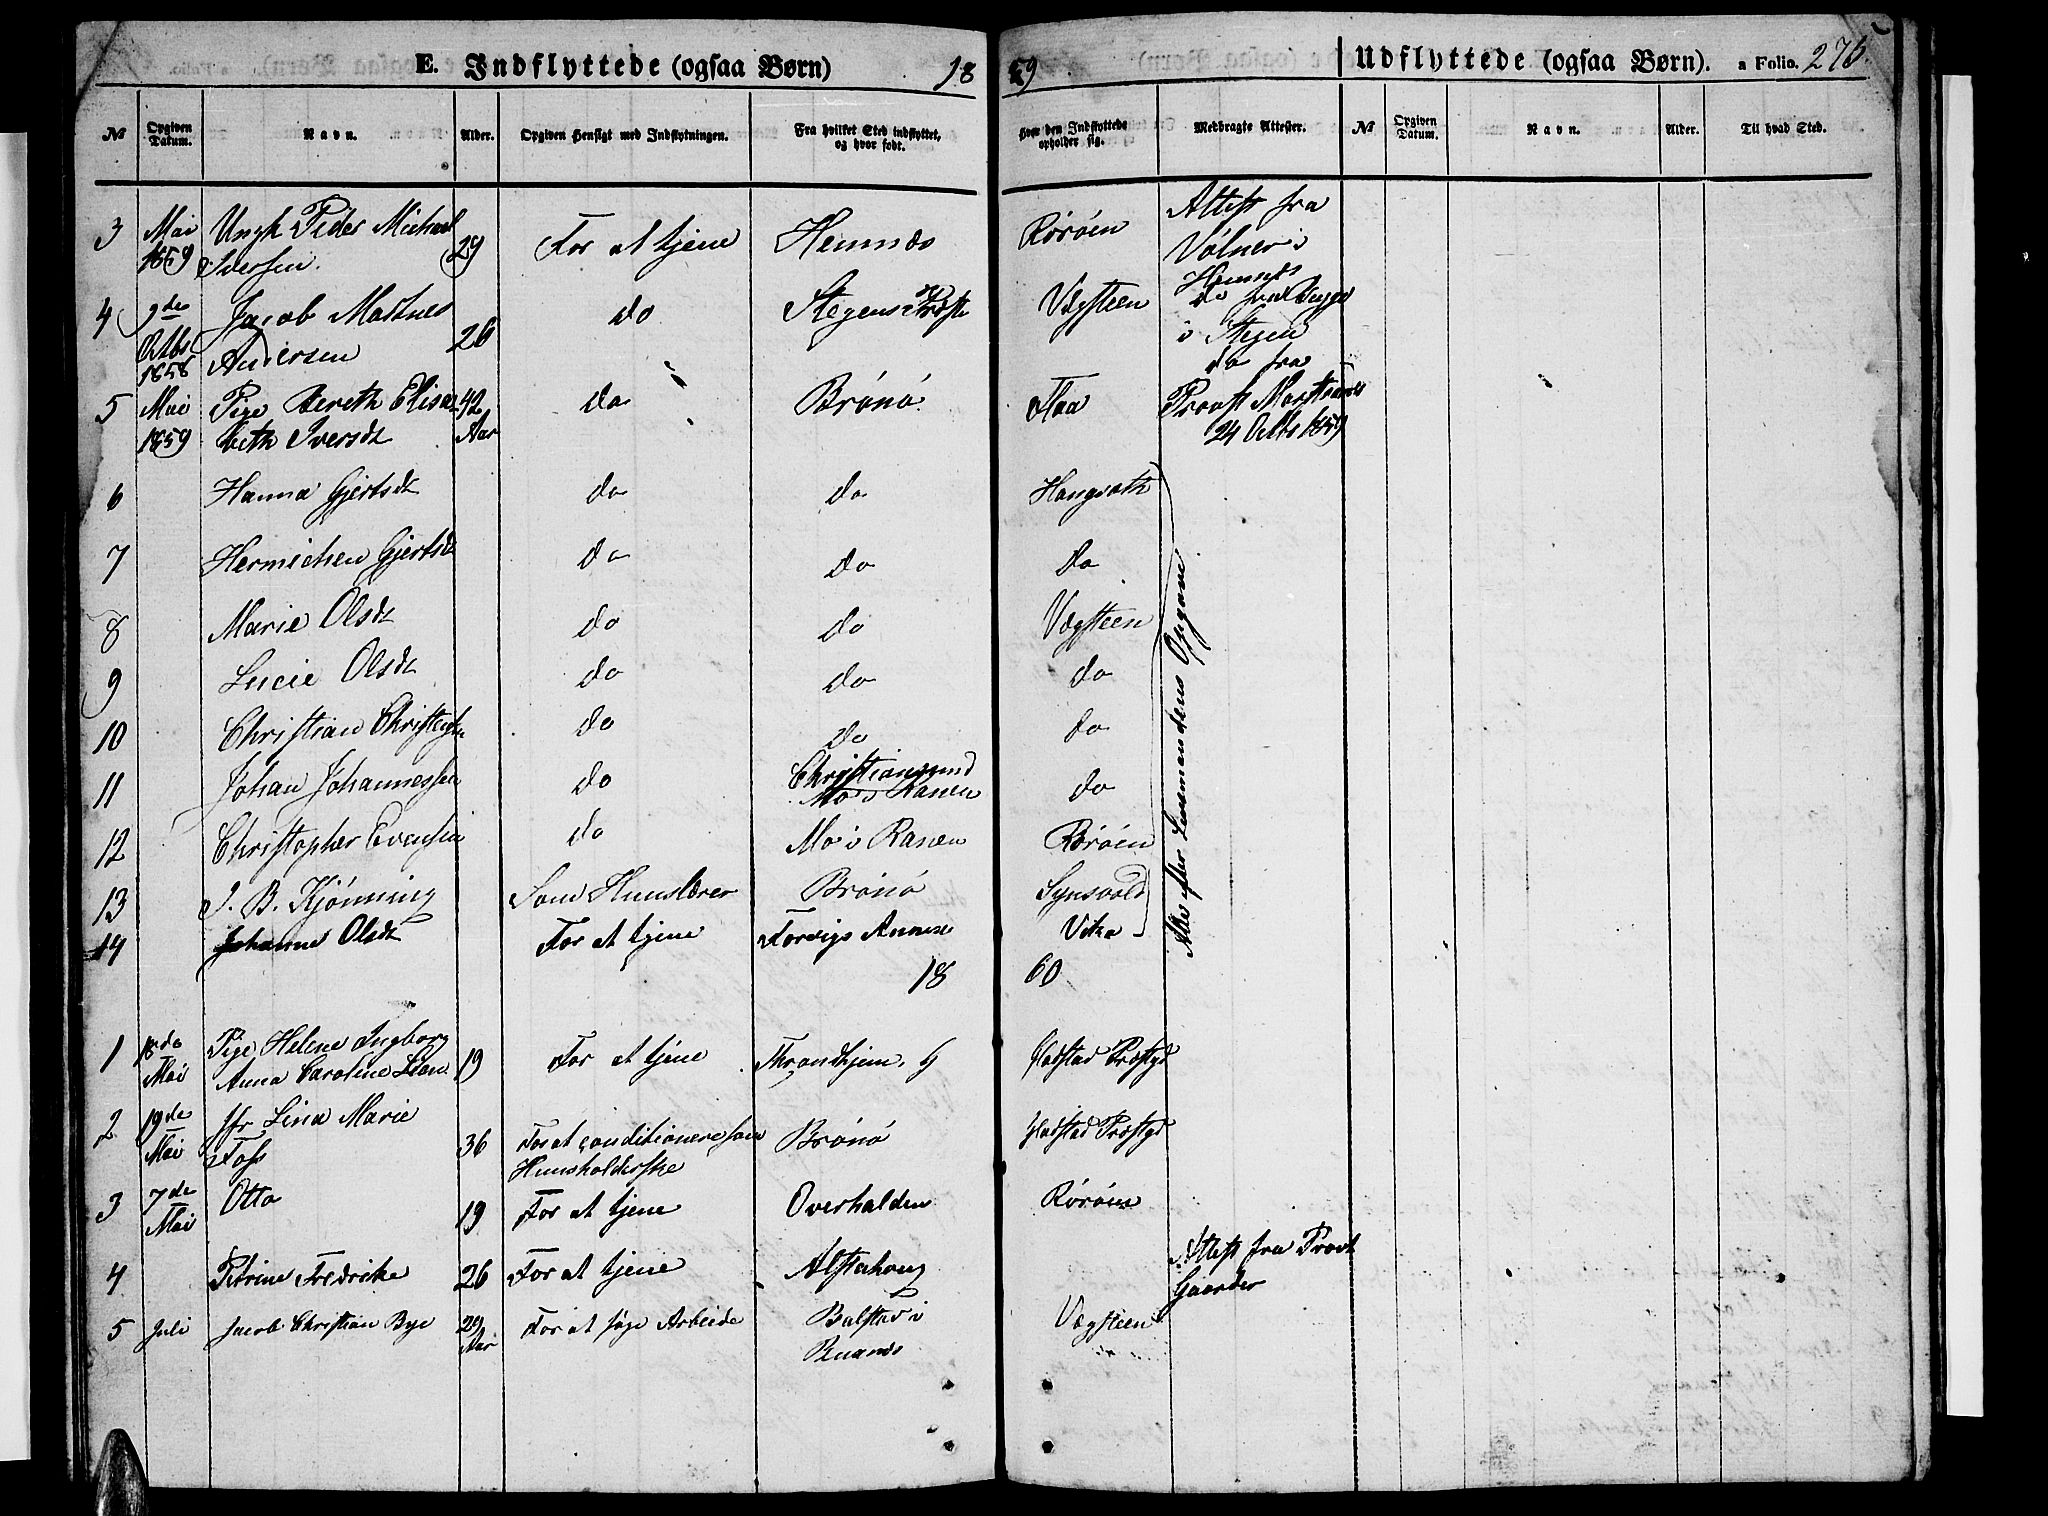 E. Indflyttede (ogsaa Børn) 18 59 Udflyttede (ogsaa Børn). a Folio. 275.
No Opgiven Datum. Navn. Alder. Opgiven Hensigt med Indflytningen. Fra hvilket Sted indflyttet, og hvor født. Hvor den Indflyttede opholder sig. Medbragte Attester. No Opgiven Datum. Navn. Alder. Til hvad Sted.
3 Mai Ungk Peder Michael 29 For at tjene Hemnæs Rørøen Attest fra
1859 Iversen Vølner i
Hemnæs
4 9de Jacob Mastnes 26 do Stegens Vægsteen do fra
Octbr Andersen i Stegen
1858 do fra
5 Mai Pige Bereth Elisa 42 do Brønø Flaa Provst
1859 beth Iversdt Aar 24 Octbr 1859
6 Hanna Gjertsdt do do Hongsath
7 Hermichen Gjertsdt do do do
8 Marie Olsdt do do Vægsteen
9 Lucie Olsdt do do do
10 Christian Christensen do do do
11 Johan Johannessen do Christiansund do
Mo i Ranen
12 Christopher Evensen do Mo i Ranen Rørøen
13 J. B. Kjønning Som Huuslærer Brønø Synsvold
14 Johanne Olsdt For at tjene Forvigs Annex Vika
Alle efter Lensmandens Opgave
18 60
1 18de Pige Helene Ingborg 19 For at tjene Throndhjem Hadstad Præstgd
Mai Anna Caroline
2 19de Jfr Lina Marie 36 For at conditionere som Brønø Hadstad Præstgd
Mai Foss Huusholderske
3 7de Otto 19 For at tjene Overhalden Rørøen
Mai
4 Petrine Fredrike 26 For at tjene Alstahoug Attest fra Provst
Gaarder
5 Juli Jacob Christian Bye 29 For at søge Arbeide Balstad i Vægsteen
Aar Buxnæs